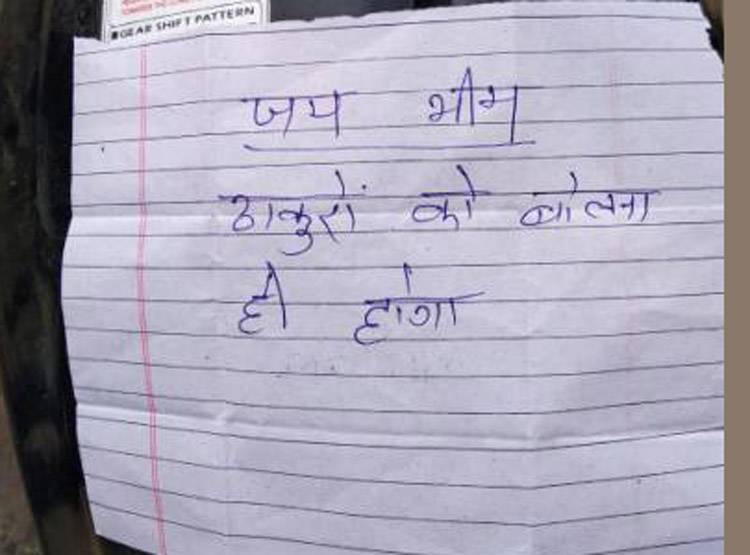 GEAR SHIFT PATTERN
जय भीम
ठाकुरों को बोलना
ही होगा